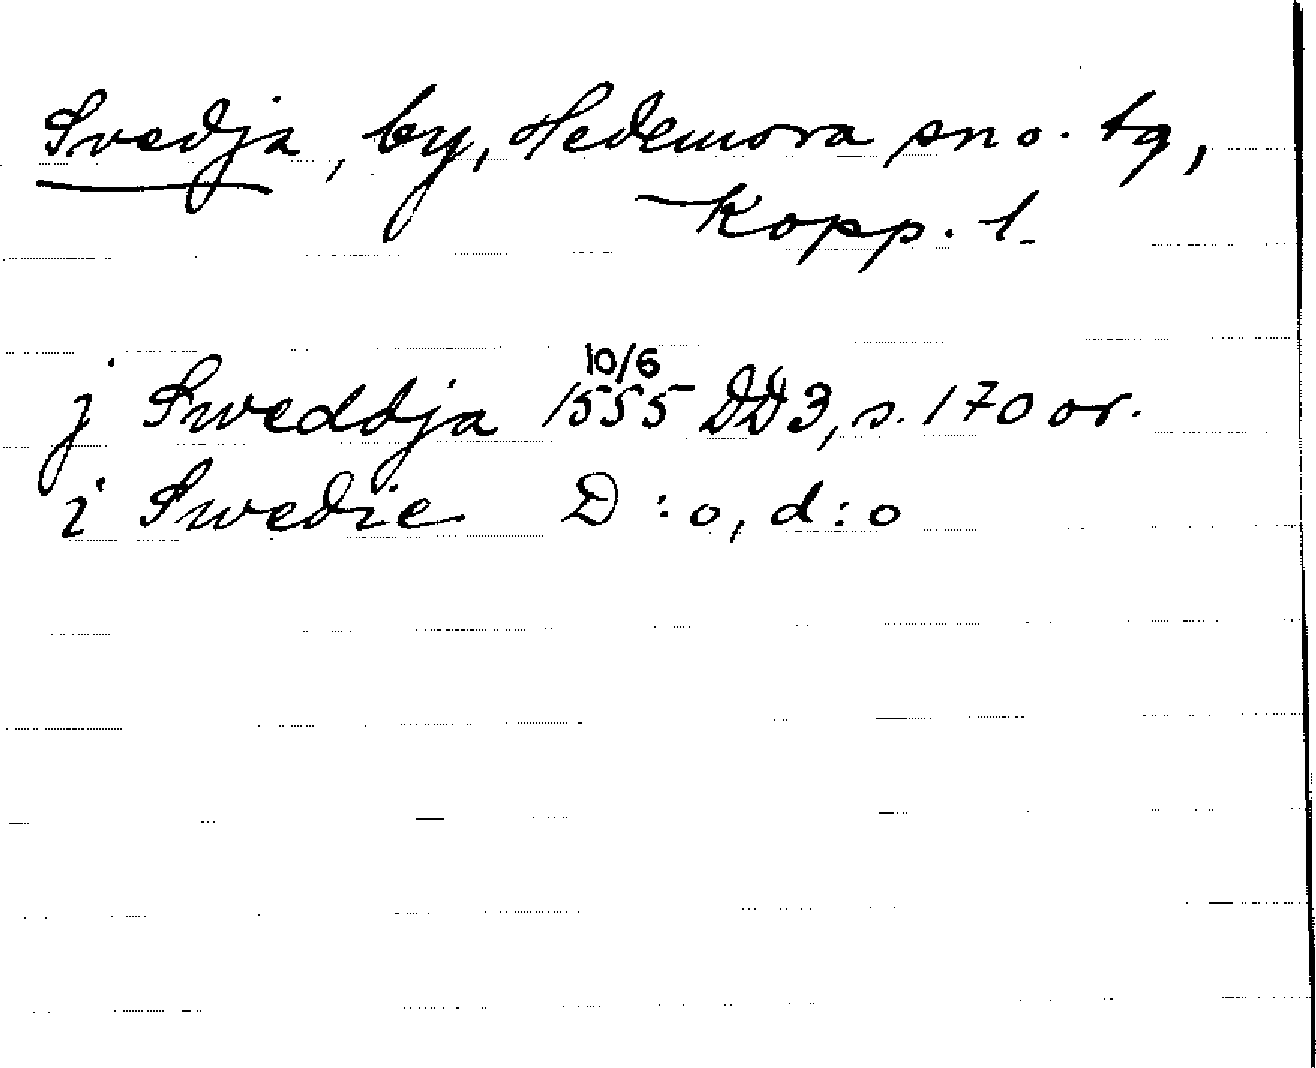 Svedja, by, Hedemora sn o. tg,
Kopp. l.
j Sweddja 10/6 1555 DD3, s. 170 or.
i Swedie D:o, d:o